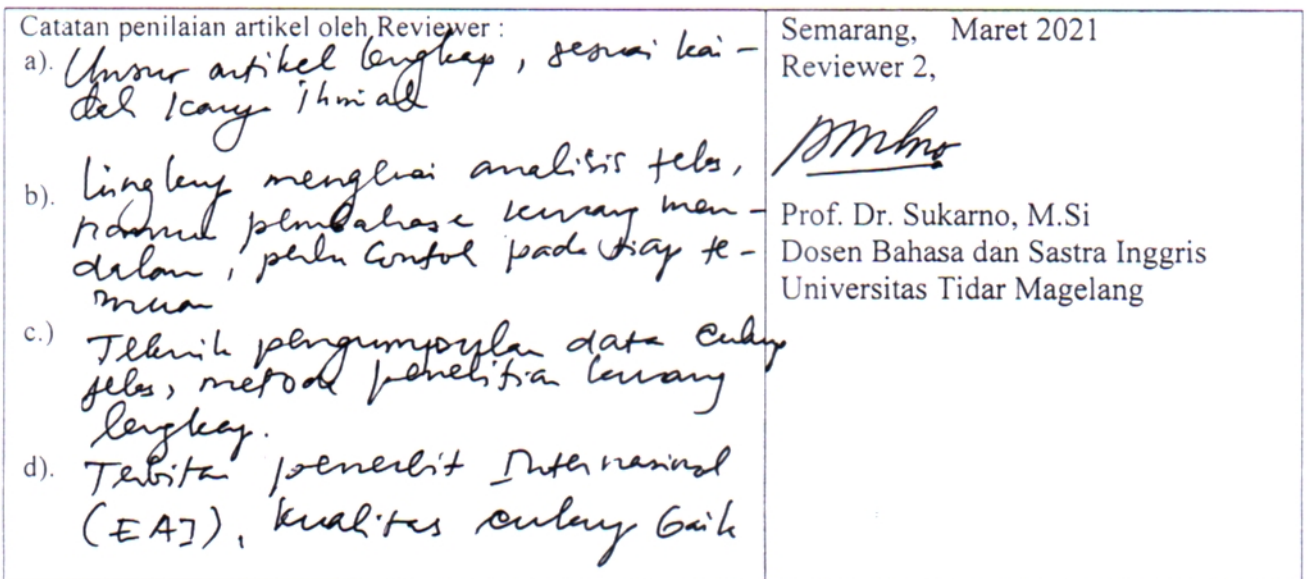 Catatan penilaian artikel oleh Reviewer :
a). Unsur artikel lengkap, sesuai kai-
dah karya ilmiah
b). lingkup mengkaji analisis teks,
namun pembahasan kurang men-
dalam, perlu contoh pada tiap te-
muan
c.) Teknik pengumpulan data cukup
jelas, metode penelitian kurang
lengkap.
d). Terbitan penerbit Internasional
(EAI), kualitas cukup baik
Semarang, Maret 2021
Reviewer 2,
Prof. Dr. Sukarno, M.Si
Dosen Bahasa dan Sastra Inggris
Universitas Tidar Magelang